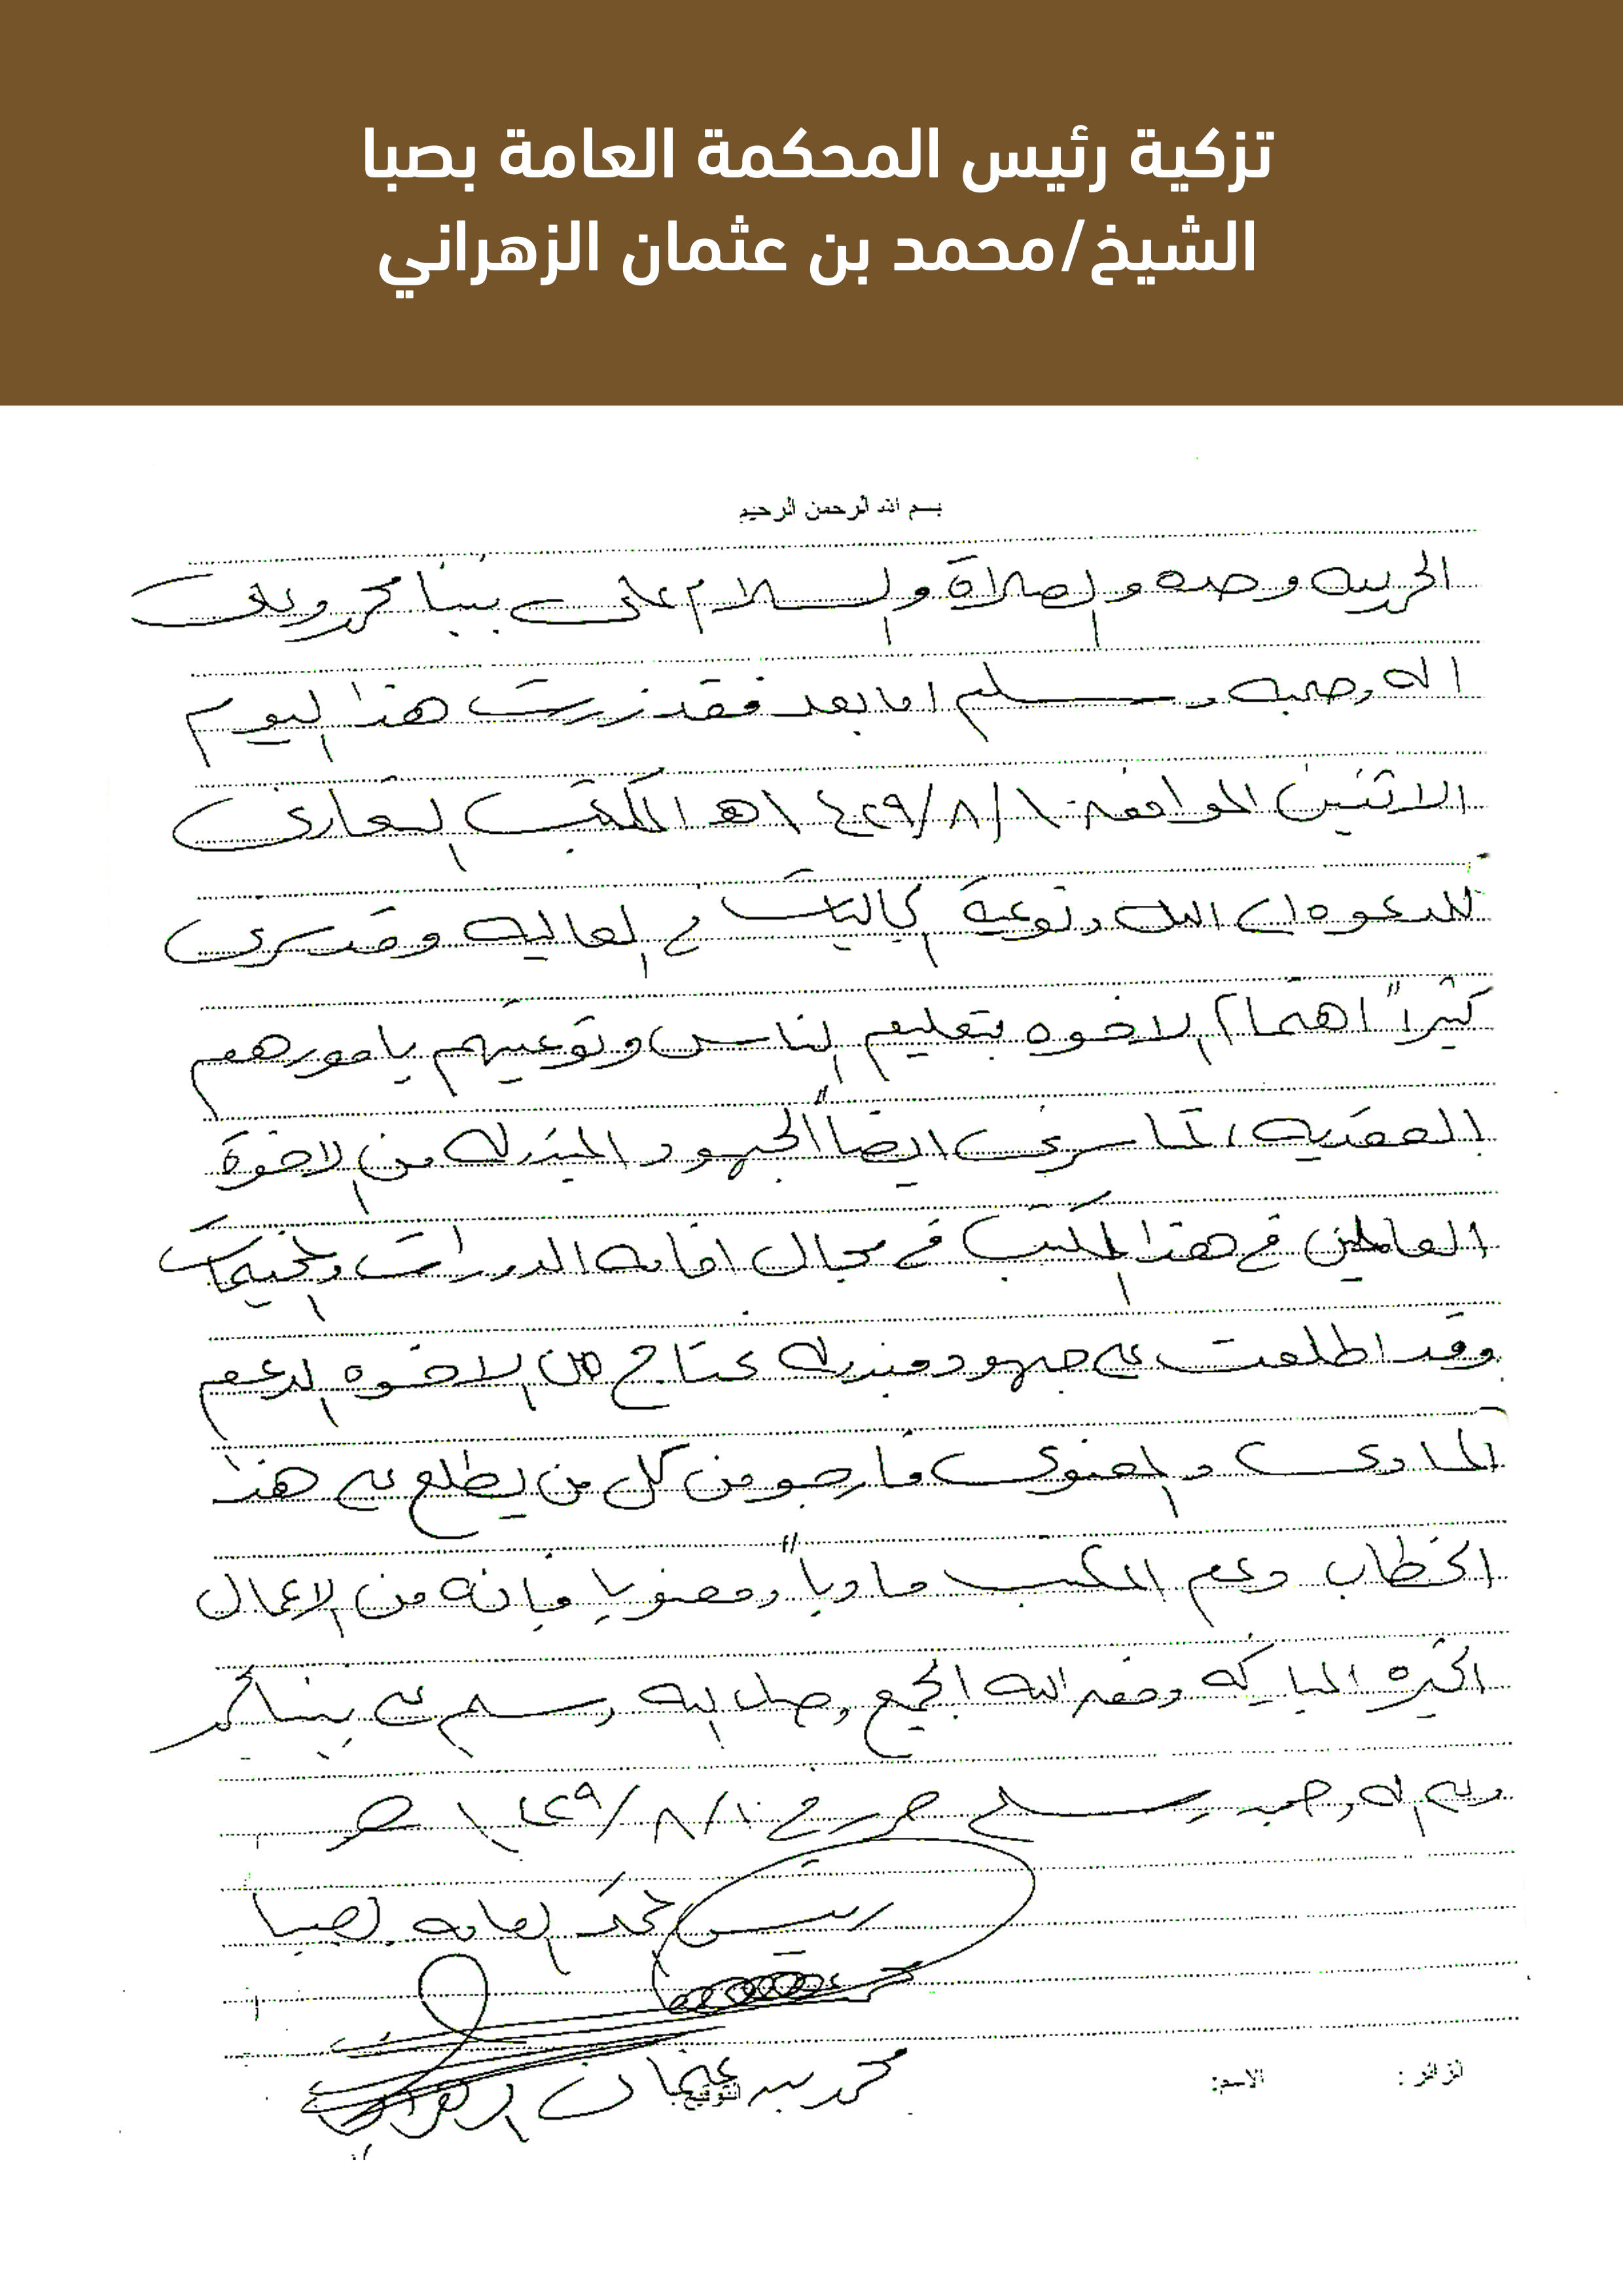 تزكية رئيس المحكمة العامة بصبا
الشيخ/محمد بن عثمان الزهراني
بسم الله الرحمن الرحيم
الحمد لله وحده والصلاة والسلام على نبينا محمد وعلى
اله وصحبه وسلم اما بعد فقد زرت هذا اليوم
الاثنين الموافق ١٤٢٩/٨/١٠ه المكتب التعاوني
للدعوه الى الله وتوعية الجاليات في العاليه وقد سرني
كثيراً اهتمام الاخوه بتعليم الناس وتوعيتهم بامورهم
العقديه كما سرني ايضاً الجهود المبذوله من الاخوة
العاملين في هذا المكتب في مجال اقامه الدورات والمخيمات
وقد اطلعت على جهود مبذوله تحتاج من الاخوه الدعم
المادي والمعنوي فارجو من كل من يطلع على هذا
الخطاب دعم المكتب مادياً ومعنويا فإنه من الاعمال
الخيره المباركه وفق الله الجميع وصلى الله وسلم على نبينا محمد
وعلى اله وصحبه وسلم حرر في ١٤٢٩/٨/١٠ هـ
رئيس المحكمة العامه بصبيا
محمد بن عثمان الزهراني
الزائر : الاسم: التوقيع